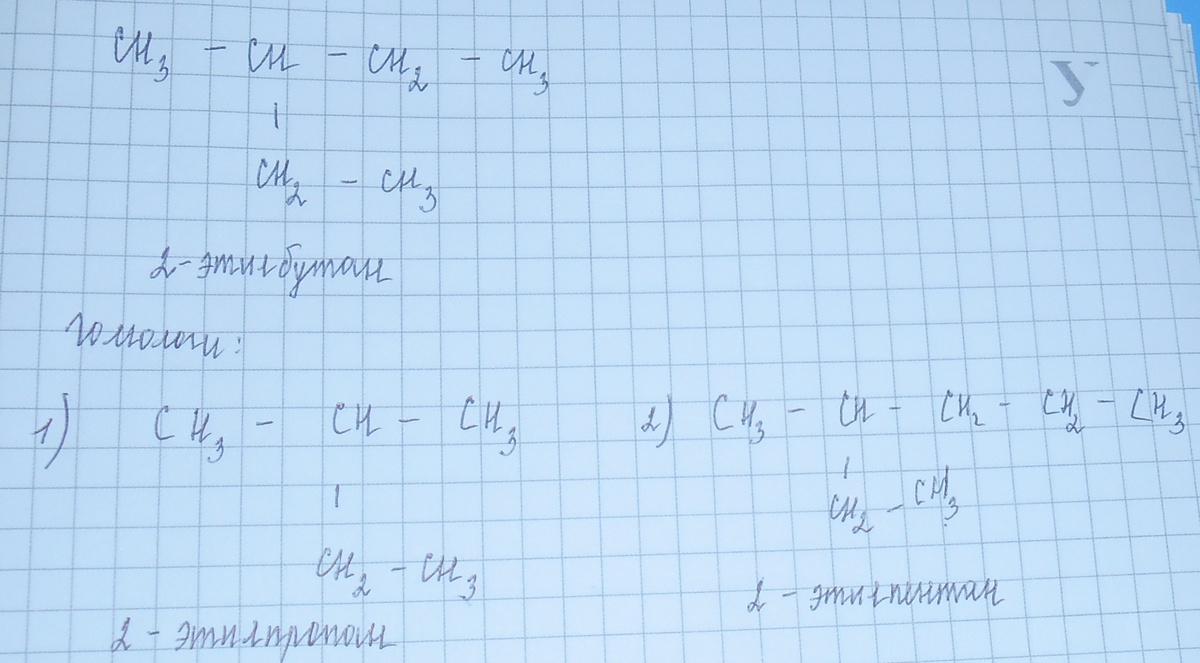 CH₃ – CH – CH₂ – CH₃
|
CH₂ – CH₃
2-этилбутан
Гомологи:
1) CH₃ – CH – CH₃
|
CH₂ – CH₃
2 - этилпропан
2) CH₃ – CH – CH₂ – CH₂ – CH₃
|
CH₂ – CH₃
2 - этилпентан
У